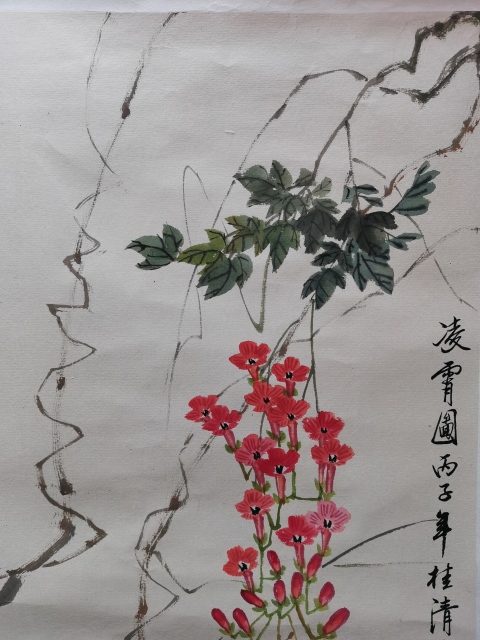 凌霄圖丙子年桂清